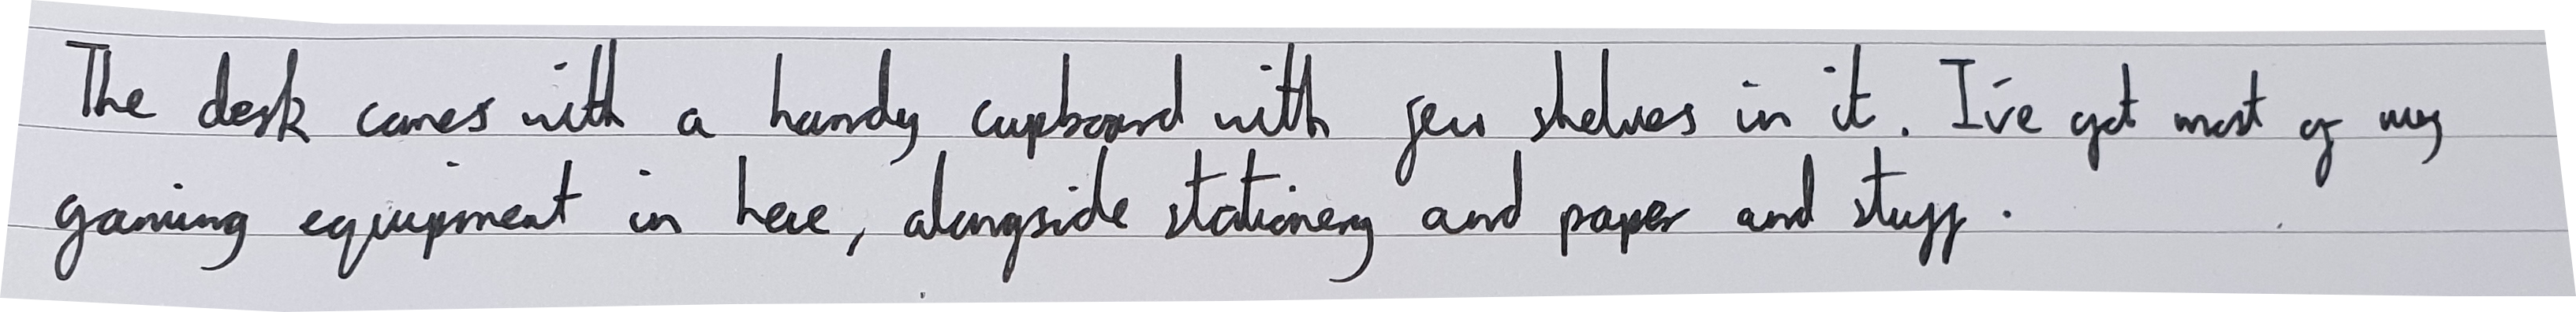 The desk comes with a handy cupboard with few shelves in it. I've got most of my
gaming equipment in here, alongside stationery and paper and stuff.